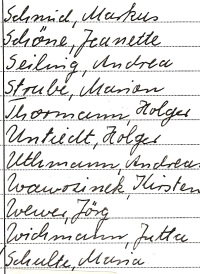 Schmid, Markus
Schöne, Jeanette
Seiling, Andrea
Strube, Marion
Thormann, Holger
Untiedt, Holger
Uthmann, Andreas
Wawrosinek, Kirsten
Wewer, Jörg
Wichmann, Jutta
Schulte, Maria